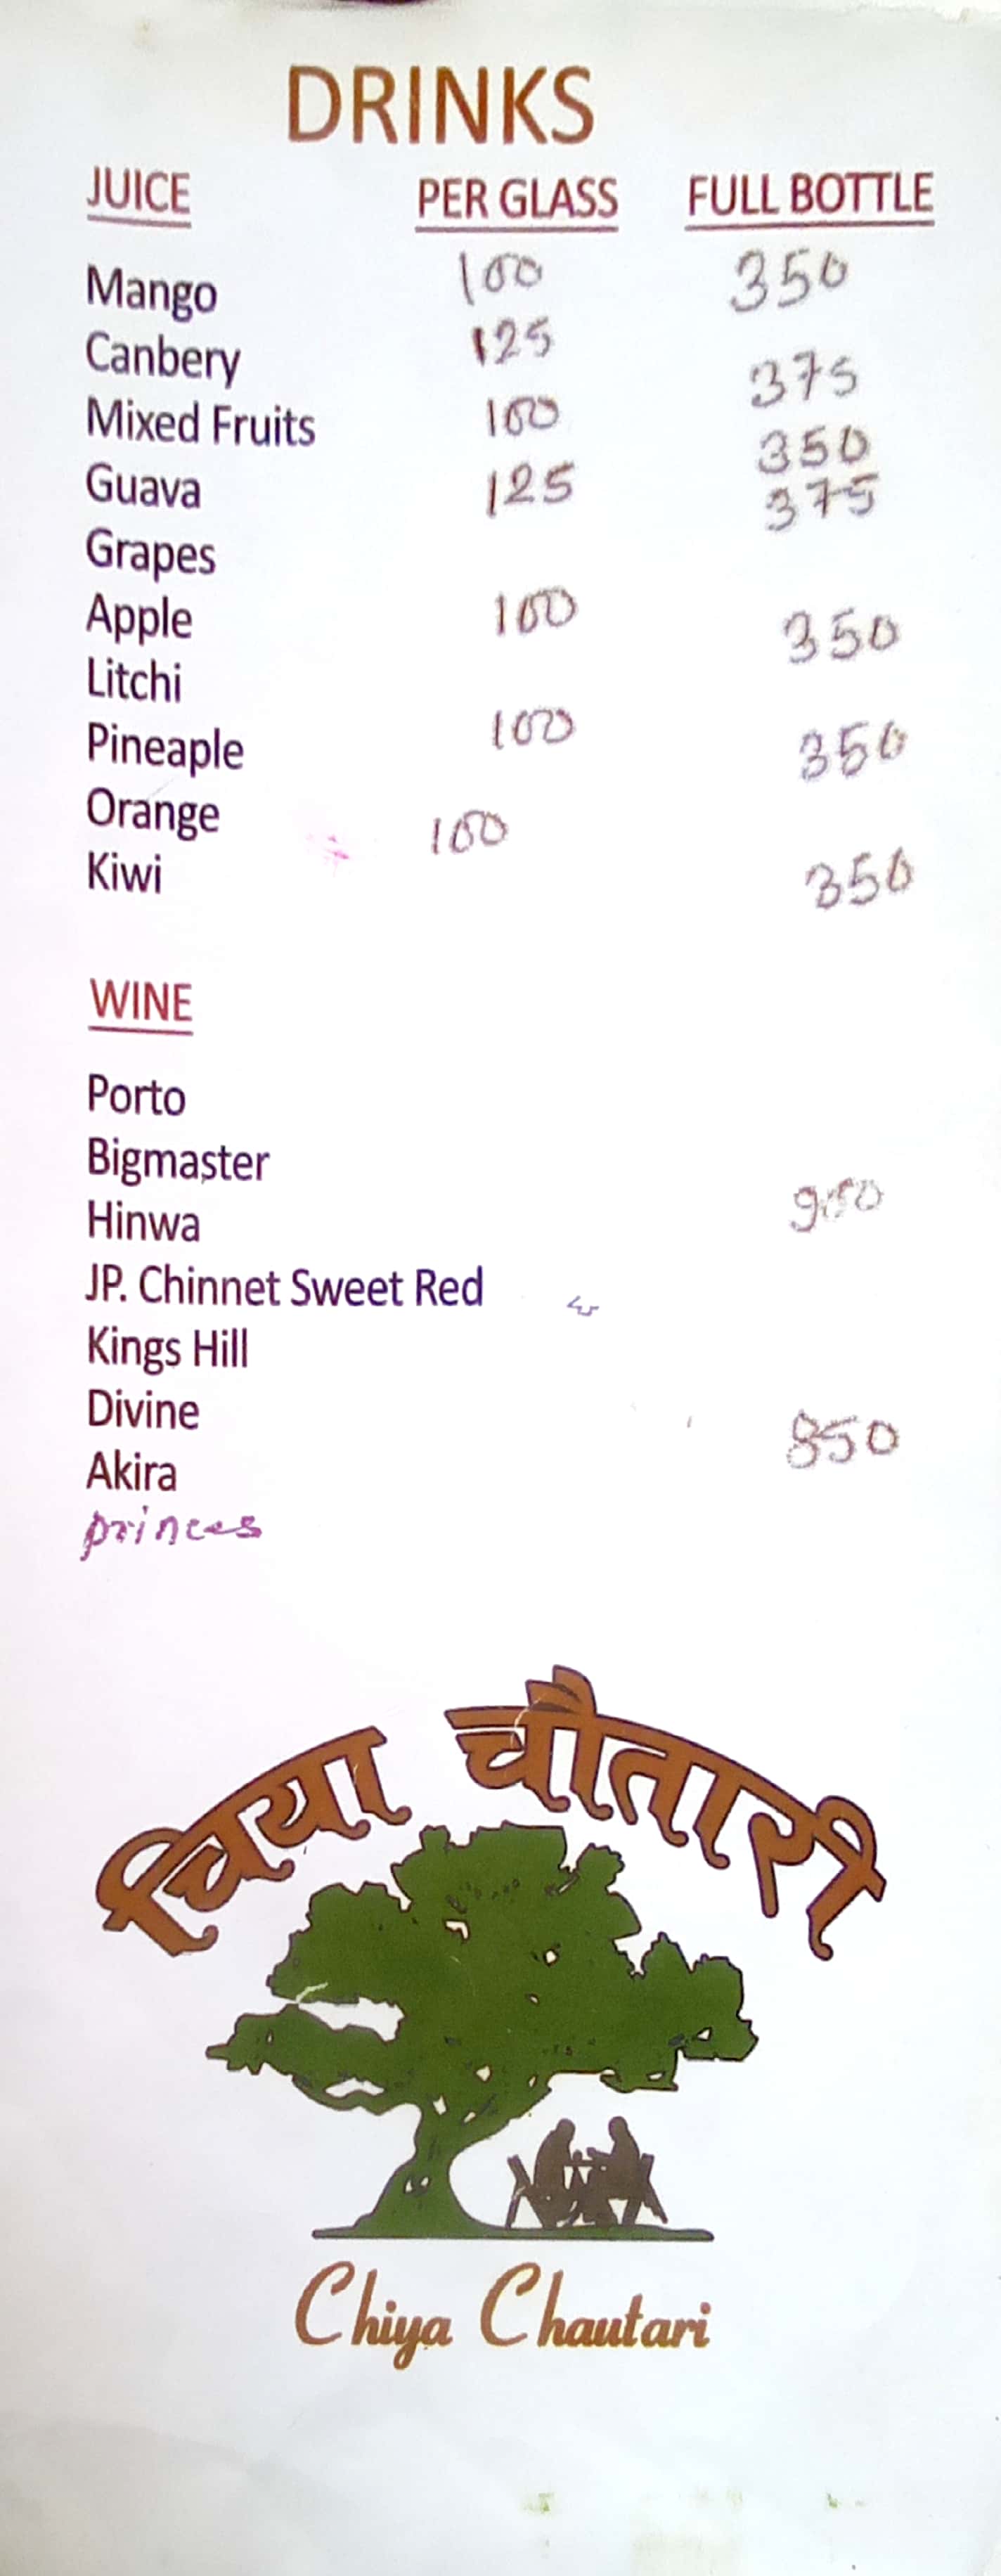 DRINKS
JUICE PER GLASS FULL BOTTLE
Mango 100 350
Canbery 125 375
Mixed Fruits 100 350
Guava 125 375
Grapes
Apple 100 350
Litchi
Pineaple 100 350
Orange 100
Kiwi 350
WINE
Porto
Bigmaster
Hinwa 900
JP. Chinnet Sweet Red
Kings Hill
Divine 850
Akira
princes
चिया चौतारी
Chiya Chautari